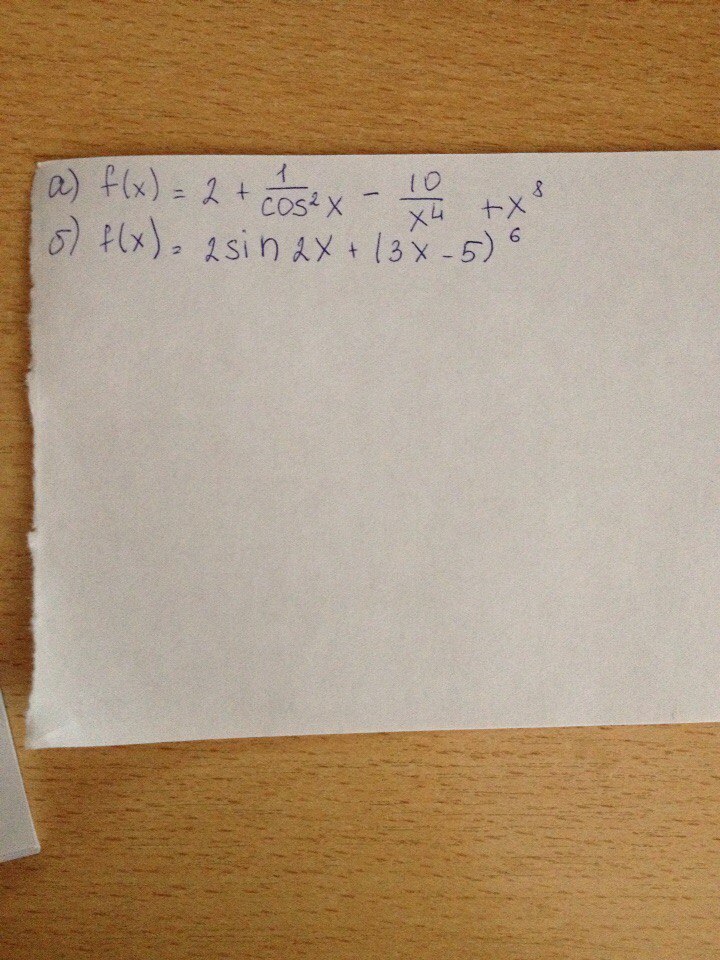 а) f(x) = 2 + 1/cos²x - 10/x⁴ + x⁸
б) f(x) = 2sin 2x + (3x - 5)⁶